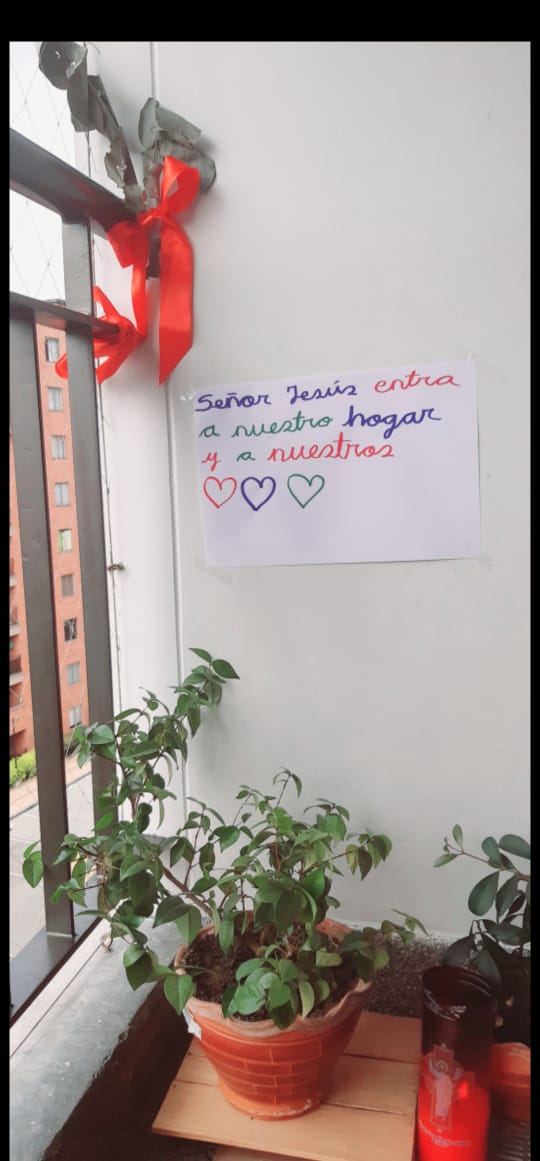 Señor Jesús entra
a nuestro hogar
y a nuestros